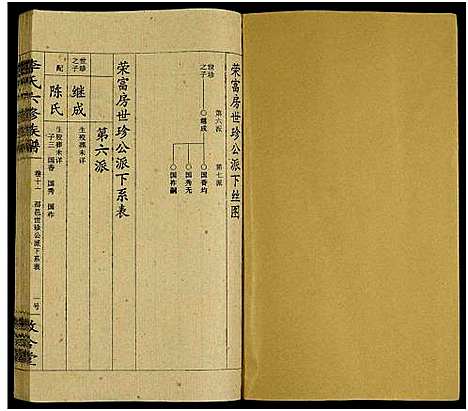 荣富房世珍公派下丝图
世珍之子
第六派
继成
第七派
国香均
国秀无
国祚嗣
荣富房世珍公派下系表
第六派
世珍之子
继成
生殁葬未详
配
陈氏
生殁葬未详
子三 国香 国秀 国祚
李氏六修族谱
卷十二
邵邑世珍公派下系表
一号
敦合堂